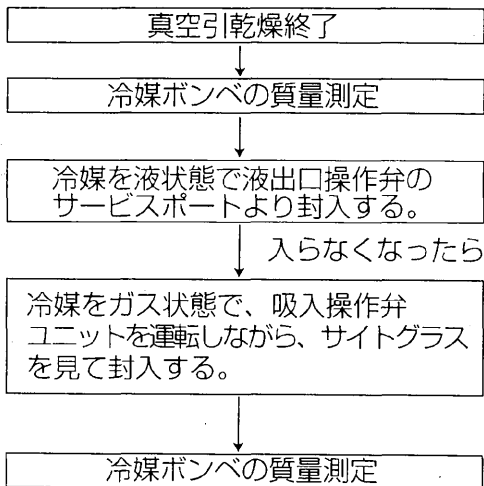 真空引乾燥終了
冷媒ボンベの質量測定
冷媒を液状態で液出口操作弁の
サービスポートより封入する。
入らなくなったら
冷媒をガス状態で、吸入操作弁
ユニットを運転しながら、サイトグラス
を見て封入する。
冷媒ボンベの質量測定